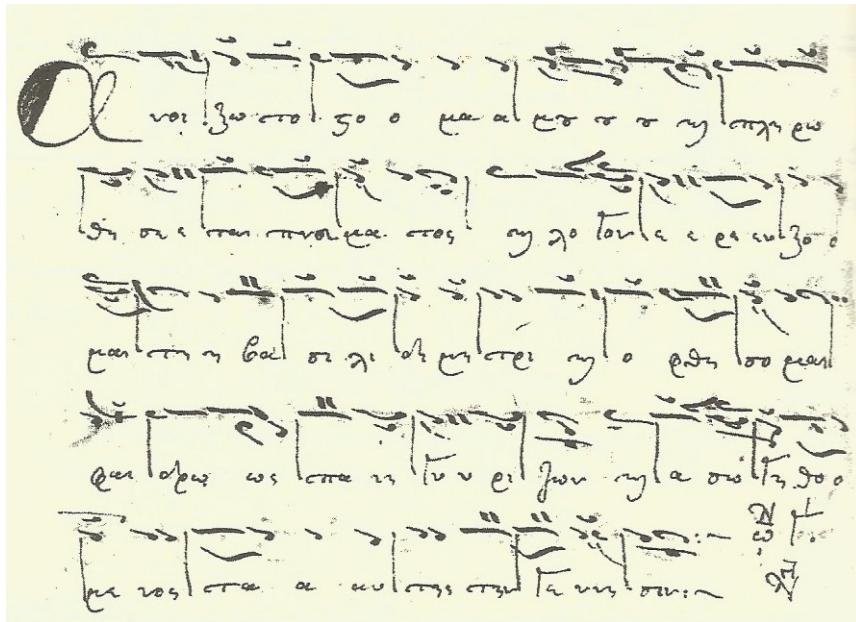 Ανοι ξω το στο ο μα α μου ου ου και πλη ρω
θη σε ε ται πνευ μα τος και λο γον ε ε ρε ευ ξο ο
μαι τη η βα σι λι δι μη τρι και ο φθη σο μαι
φαι δρως ως πα νη γυ υ ρι ζων και α σω γη θο ο
με νος τα α αυ της την γε ννη σιν